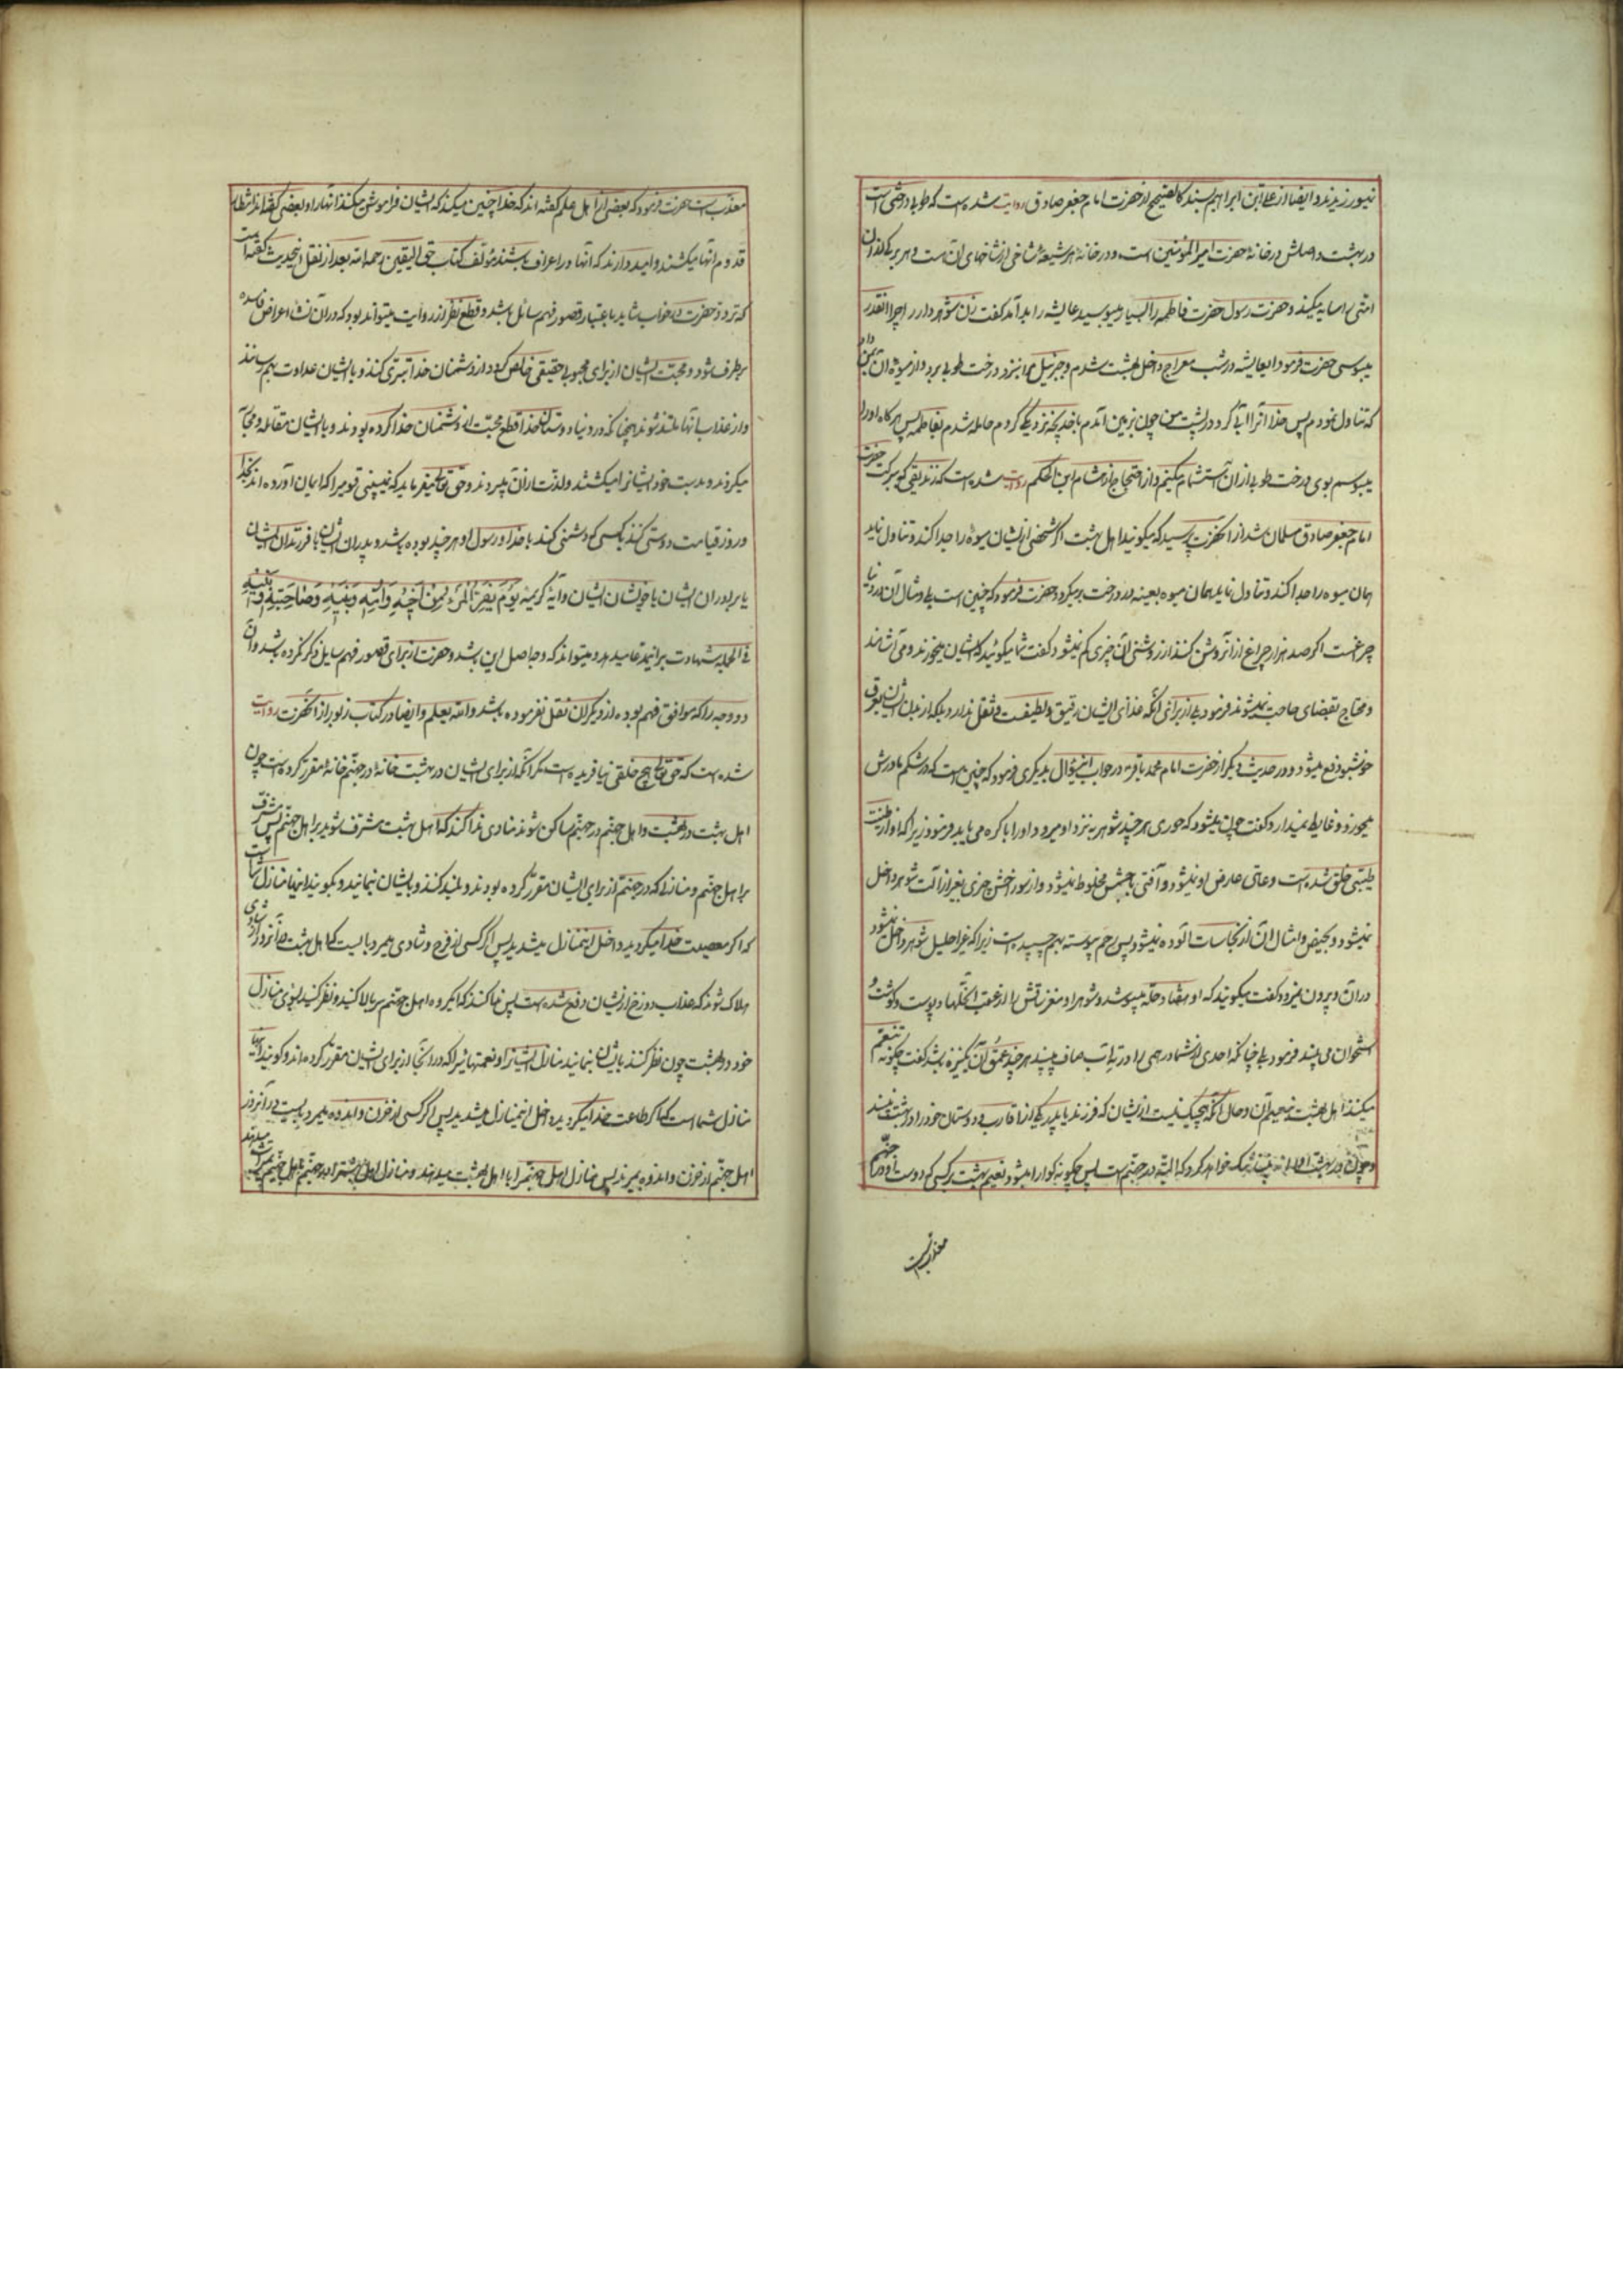 نمیورزیدند و ایضا از علی ابن ابراهیم بسند کالصحیح از حضرت امام جعفر صادق روایت شده است که طوبی درختی است
در بهشت و اصلش در خانهٔ حضرت امیر المؤمنین است و در خانهٔ هر شیعهٔ شاخی از شاخهای آن است و هر برگی از آن
امتی را سایه میکند و حضرت رسول حضرت فاطمه را بسیار میبوسید عایشه را بد آمد گفت زن شوهردار را چرا انقدر
میبوسی حضرت فرمود ایعایشه در شب معراج داخل بهشت شدم و جبرئیل مرا بنزد درخت طوبی برد و از میوهٔ آن بمن داد
که تناول نمودم پس خدا آنرا آبی کرد در پشت من چون بزمین آمدم با خدیجه نزدیکی کردم حامله شدم بفاطمه پس هرگاه او را
میبوسم بوی درخت طوبی از آن استشمام میکنم و از احتجاج از هشام ابن الحکم روایت شده است که زندیقی که ببرکت حضرت
امام جعفر صادق مسلمان شد از آنحضرت پرسید که میگویند اهل بهشت اگر شخصی از ایشان میوهٔ را جدا کند و تناول نماید
همان میوه را جدا کند و تناول نماید همان میوه بعینه در درخت برمیگردد حضرت فرمود که چنین است بلی و مثال آن در دنیا
چراغست اگر صد هزار چراغ از آن روشن کنند از روشنی آن چیزی کم نمیشود گفت شما میگوئید که ایشان میخورند و می آشامند
و محتاج بقضای حاجت نمیشوند فرمود بلی از برای آنکه غذای ایشان رقیق و لطیفست و ثقل ندارد بلکه از بدن ایشان بعرق
خوشبو دفع میشود و در حدیث دیگر از حضرت امام محمد باقر در جواب این سؤال بدیگری فرمود که چنین است که در شکم مادرش
میخورد و غایط نمیدارد گفت چون میشود که حوری هر چند شوهر به نزد او میرود او را باکره می یابد فرمود زیرا که او از طینت
طیبی خلق شده است و عاهتی عارض او نمیشود و آفتی با جسمش مخلوط نمیشود و از سوراخش چیزی بغیر از آلت شوهر داخل
نمیشود و بحیض و امثال آن از نجاسات آلوده نمیشود پس رحم پیوسته بهم چسپیده است زیرا که غیر احلیل شوهر داخل نمیشود
در آن و بیرون نمیرود گفت میگویند که او هفتاد حله میپوشد و شوهر او مغز ساقش را از عقب آنحلها و پوست و گوشت و
استخوان می بیند فرمود بلی چنانکه احدی از شما درهمی را در ته آب صاف می بیند هر چند عمق آن یکنیزه باشد گفت چگونه تنعم
میکنند اهل بهشت بنعیم آن و حال آنکه هیچیک نیست از ایشان که فرزند یا پدر یکی از اقارب و دوستان خود را در بهشت نمی بیند
و چون در بهشت او را نه بیند شک نخواهد کرد که البته در جهنم است پس چگونه گوارا میشود نعیم بهشت بر کسی که دوست او در جهنم
معذبست
معذب است حضرت فرمود که بعضی از اهل علم گفته اند که خدا چنین میکند که ایشان فراموش میکنند آنها را و بعضی گفته اند انتظار
قدوم آنها میکشند و امید دارند که آنها در اعراف باشند مؤلف کتاب حق الیقین رحمه الله بعد از نقل اینحدیث گفته است
که تردد حضرت در جواب شاید باعتبار قصور فهم سائل باشد و قطع نظر از روایت میتواند بود که در آن نشاء اعراض فاسده
برطرف شود و محبت ایشان از برای محبوب حقیقی خالص گردد و از دشمنان خدا تبری کنند و با ایشان عداوت بهم رسانند
و از عذاب آنها ملتذ شوند همچنانکه در دنیا دوستان خدا قطع محبت از دشمنان خدا کرده بودند و با ایشان مقاتله و محاربه
میکردند و بدست خود ایشانرا میکشتند و لذت از آن میبردند و حق تعالی میفرماید که نمیبینی قومیرا که ایمان آورده اند بخدا
و روز قیامت دوستی کنند با کسی که دشمنی کند با خدا و رسول او هر چند بوده باشد پدران ایشان یا فرزندان ایشان
یا برادران ایشان یا خویشان ایشان و آیهٔ کریمه یَوْمَ یَفِرُّ الْمَرْءُ مِنْ اَخیهِ وَ اُمِّهِ وَ اَبیهِ وَ صاحِبَتِهِ وَ بَنیهِ
فی الجمله شهادت بر اینمدعا میدهد و میتواند که وجه اصل این باشد و حضرت از برای قصور فهم سایل ذکر نکرده باشد و آن
دو وجه را که موافق فهم بوده از دیگران نقل فرموده باشد والله یعلم و ایضا در کتاب زبور از آنحضرت روایت
شده است که حق تعالی هیچ خلقی نیافریده است مگر آنکه از برای ایشان در بهشت خانهٔ و در جهنم خانهٔ مقرر کرده است چون
اهل بهشت در بهشت و اهل جهنم در جهنم ساکن شوند منادی ندا کند که اهل بهشت مشرف شوید بر اهل جهنم پس مشرف
بر اهل جهنم و منازلی که در جهنم از برای ایشان مقرر کرده بودند و بلند کنند و بایشان نمایند و بگویند اینها منازل شما است
که اگر معصیت خدا میکردید داخل این منازل میشدید پس اگر کسی از فرح و شادی میمرد بایست که اهل بهشت در آنروز از شادی
هلاک شوند که عذاب دوزخ از ایشان دفع شده است پس ندا کنند که ایگروه اهل جهنم سر بالا کنید و نظر کنید بسوی منازل
خود در بهشت چون نظر کنند بایشان بنمایند منازل ایشانرا و نعمتهائیرا که در آنجا از برای ایشان مقرر کرده اند و گویند اینها
منازل شما است که اگر اطاعت خدا میکردید داخل این منازل میشدید پس اگر کسی از حزن و اندوه میمرد بایست در آنروز
اهل جهنم از حزن و اندوه بمیرند پس منازل اهل جهنم را با اهل بهشت میدهند و منازل اهل بهشت را در جهنم باهل جهنم بمیراث میدهند